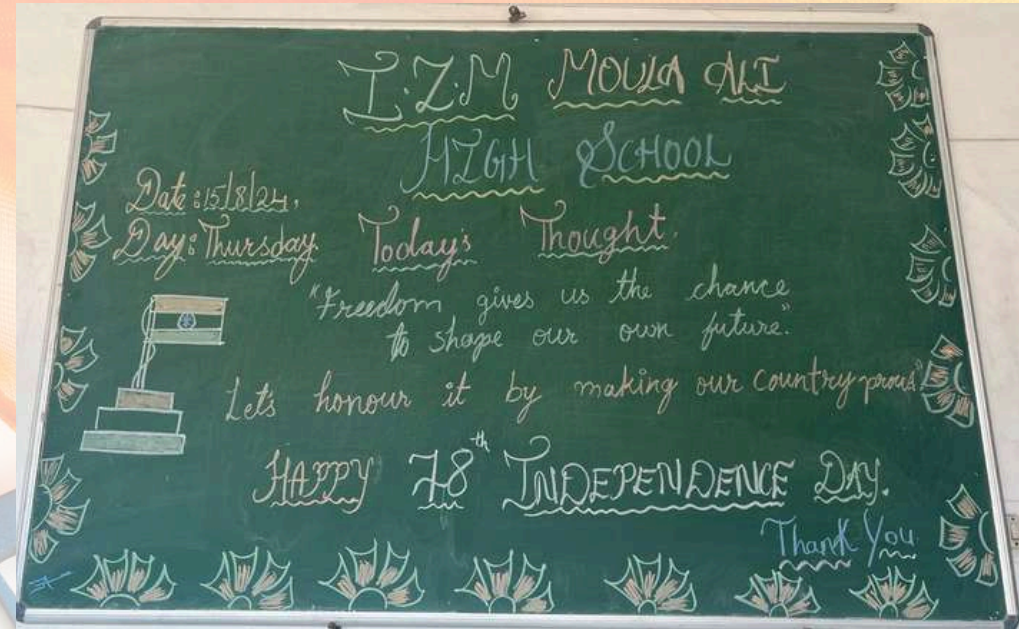 I.Z.M MOULA ALI
HIGH SCHOOL
Date: 15/8/24,
Day: Thursday.
Today's Thought.
"Freedom gives us the chance
to shape our own future."
Let's honour it by making our country proud."
HAPPY 78th INDEPENDENCE DAY.
Thank You